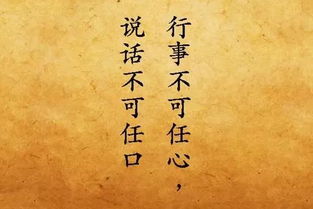 行事不可任心，
说话不可任口